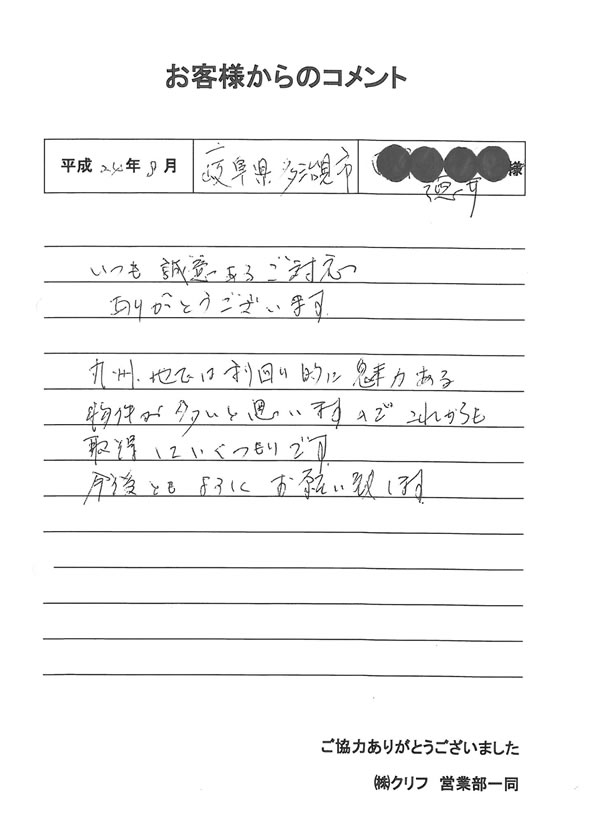 お客様からのコメント
平成24年8月 岐阜県多治見市 様
いつも誠意あるご対応
ありがとうございます
九州、地では利回り的に魅力ある
物件が多いと思いますのでこれからも
取得していくつもりです
今後ともよろしくお願い致します
ご協力ありがとうございました
㈱クリフ 営業部一同